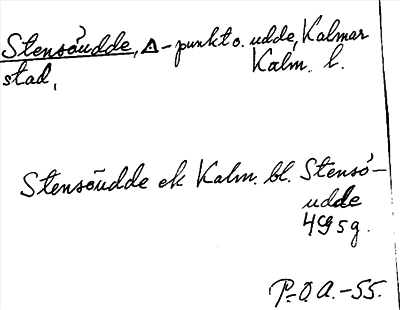 Stensöudde, △-punkt o. udde, Kalmar
stad, Kalm. l.
Stensöudde ek Kalm. bl. Stensö-
udde
4G5g.
P-O.A.-55.